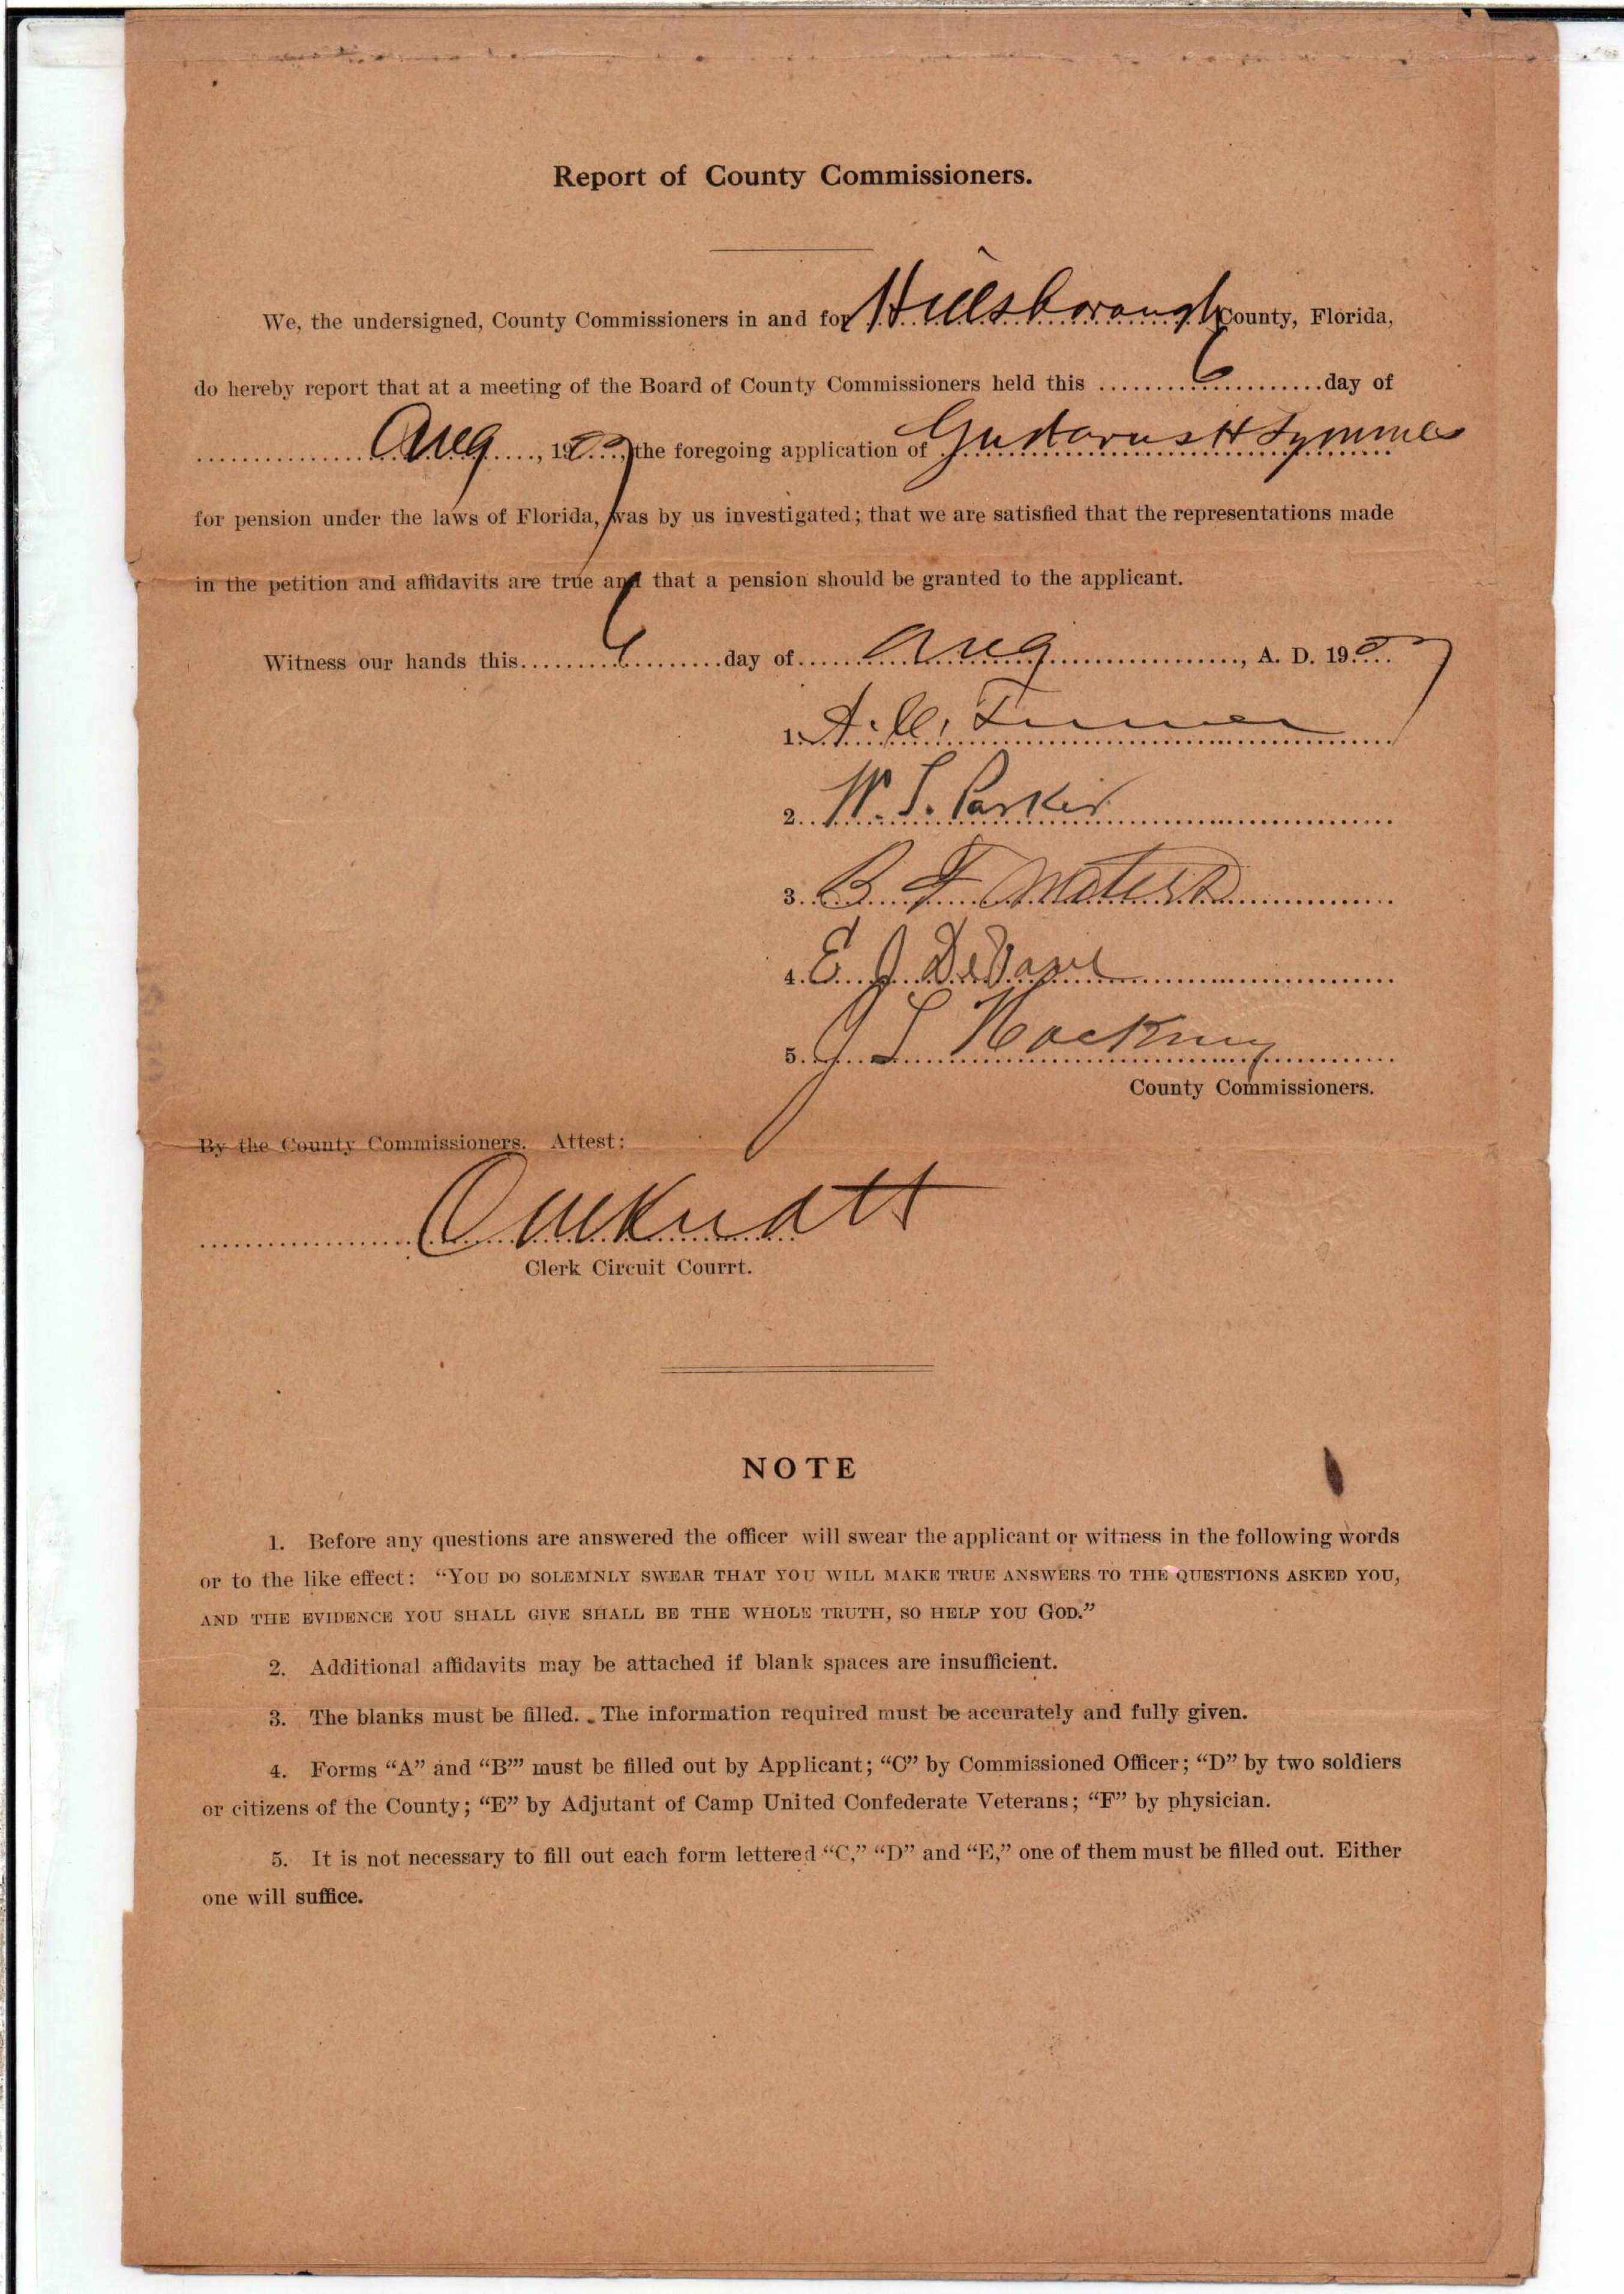 Report of County Commissioners.
We, the undersigned, County Commissioners in and for Hillsborough County, Florida,
do hereby report that at a meeting of the Board of County Commissioners held this ..........6..........day of
................Aug....., 1907, the foregoing application of Gustavus H Symmes
for pension under the laws of Florida, was by us investigated; that we are satisfied that the representations made
in the petition and affidavits are true and that a pension should be granted to the applicant.
Witness our hands this.........6.........day of......Aug...................., A. D. 1907
1. Turner
2. W. T. Parker
3. B F Waters
4. E J DeVane
5. J L Hackney
County Commissioners.
By the County Commissioners. Attest:
Clerk Circuit Courrt.
NOTE
1. Before any questions are answered the officer will swear the applicant or witness in the following words
or to the like effect: “YOU DO SOLEMNLY SWEAR THAT YOU WILL MAKE TRUE ANSWERS TO THE QUESTIONS ASKED YOU,
AND THE EVIDENCE YOU SHALL GIVE SHALL BE THE WHOLE TRUTH, SO HELP YOU GOD.”
2. Additional affidavits may be attached if blank spaces are insufficient.
3. The blanks must be filled. The information required must be accurately and fully given.
4. Forms “A” and “B”’ must be filled out by Applicant; “C” by Commissioned Officer; “D” by two soldiers
or citizens of the County; “E” by Adjutant of Camp United Confederate Veterans; “F” by physician.
5. It is not necessary to fill out each form lettered “C,” “D” and “E,” one of them must be filled out. Either
one will suffice.